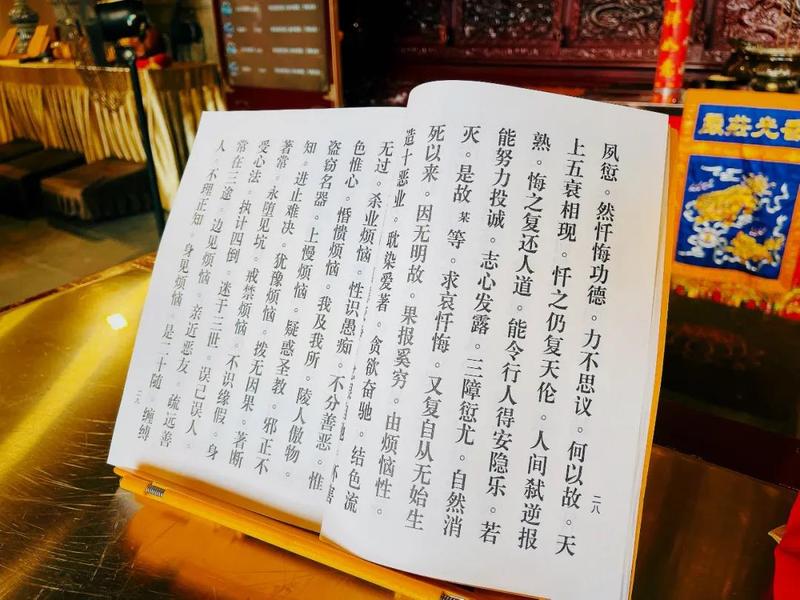 二八
夙愆。然忏悔功德。力不思议。何以故。天
上五衰相现。忏之仍复天伦。人间弑逆报
熟。悔之复还人道。能令行人得安隐乐。若
能努力投诚。志心发露。三障愆尤。自然消
灭。是故某等。求哀忏悔。又复自从无始生
死以来。因无明故。果报奚穷。由烦恼性。
造十恶业。耽染爱著。贪欲奋驰。结色流
害
无过。杀业烦恼。性识愚痴。不分善恶。惟
色惟心。惛愦烦恼。我及我所。陵人傲物。
盗窃名器。上慢烦恼。疑惑圣教。邪正不
知。进止难决。犹豫烦恼。拨无因果。著断
著常。永堕见坑。戒禁烦恼。不识缘假。身
爱心法。执计四倒。迷于三世。误己误人。
常在三途。边见烦恼。亲近恶友。疏远善
人。不理正知。身见烦恼。是二十随。缠缚
二九
光莊嚴